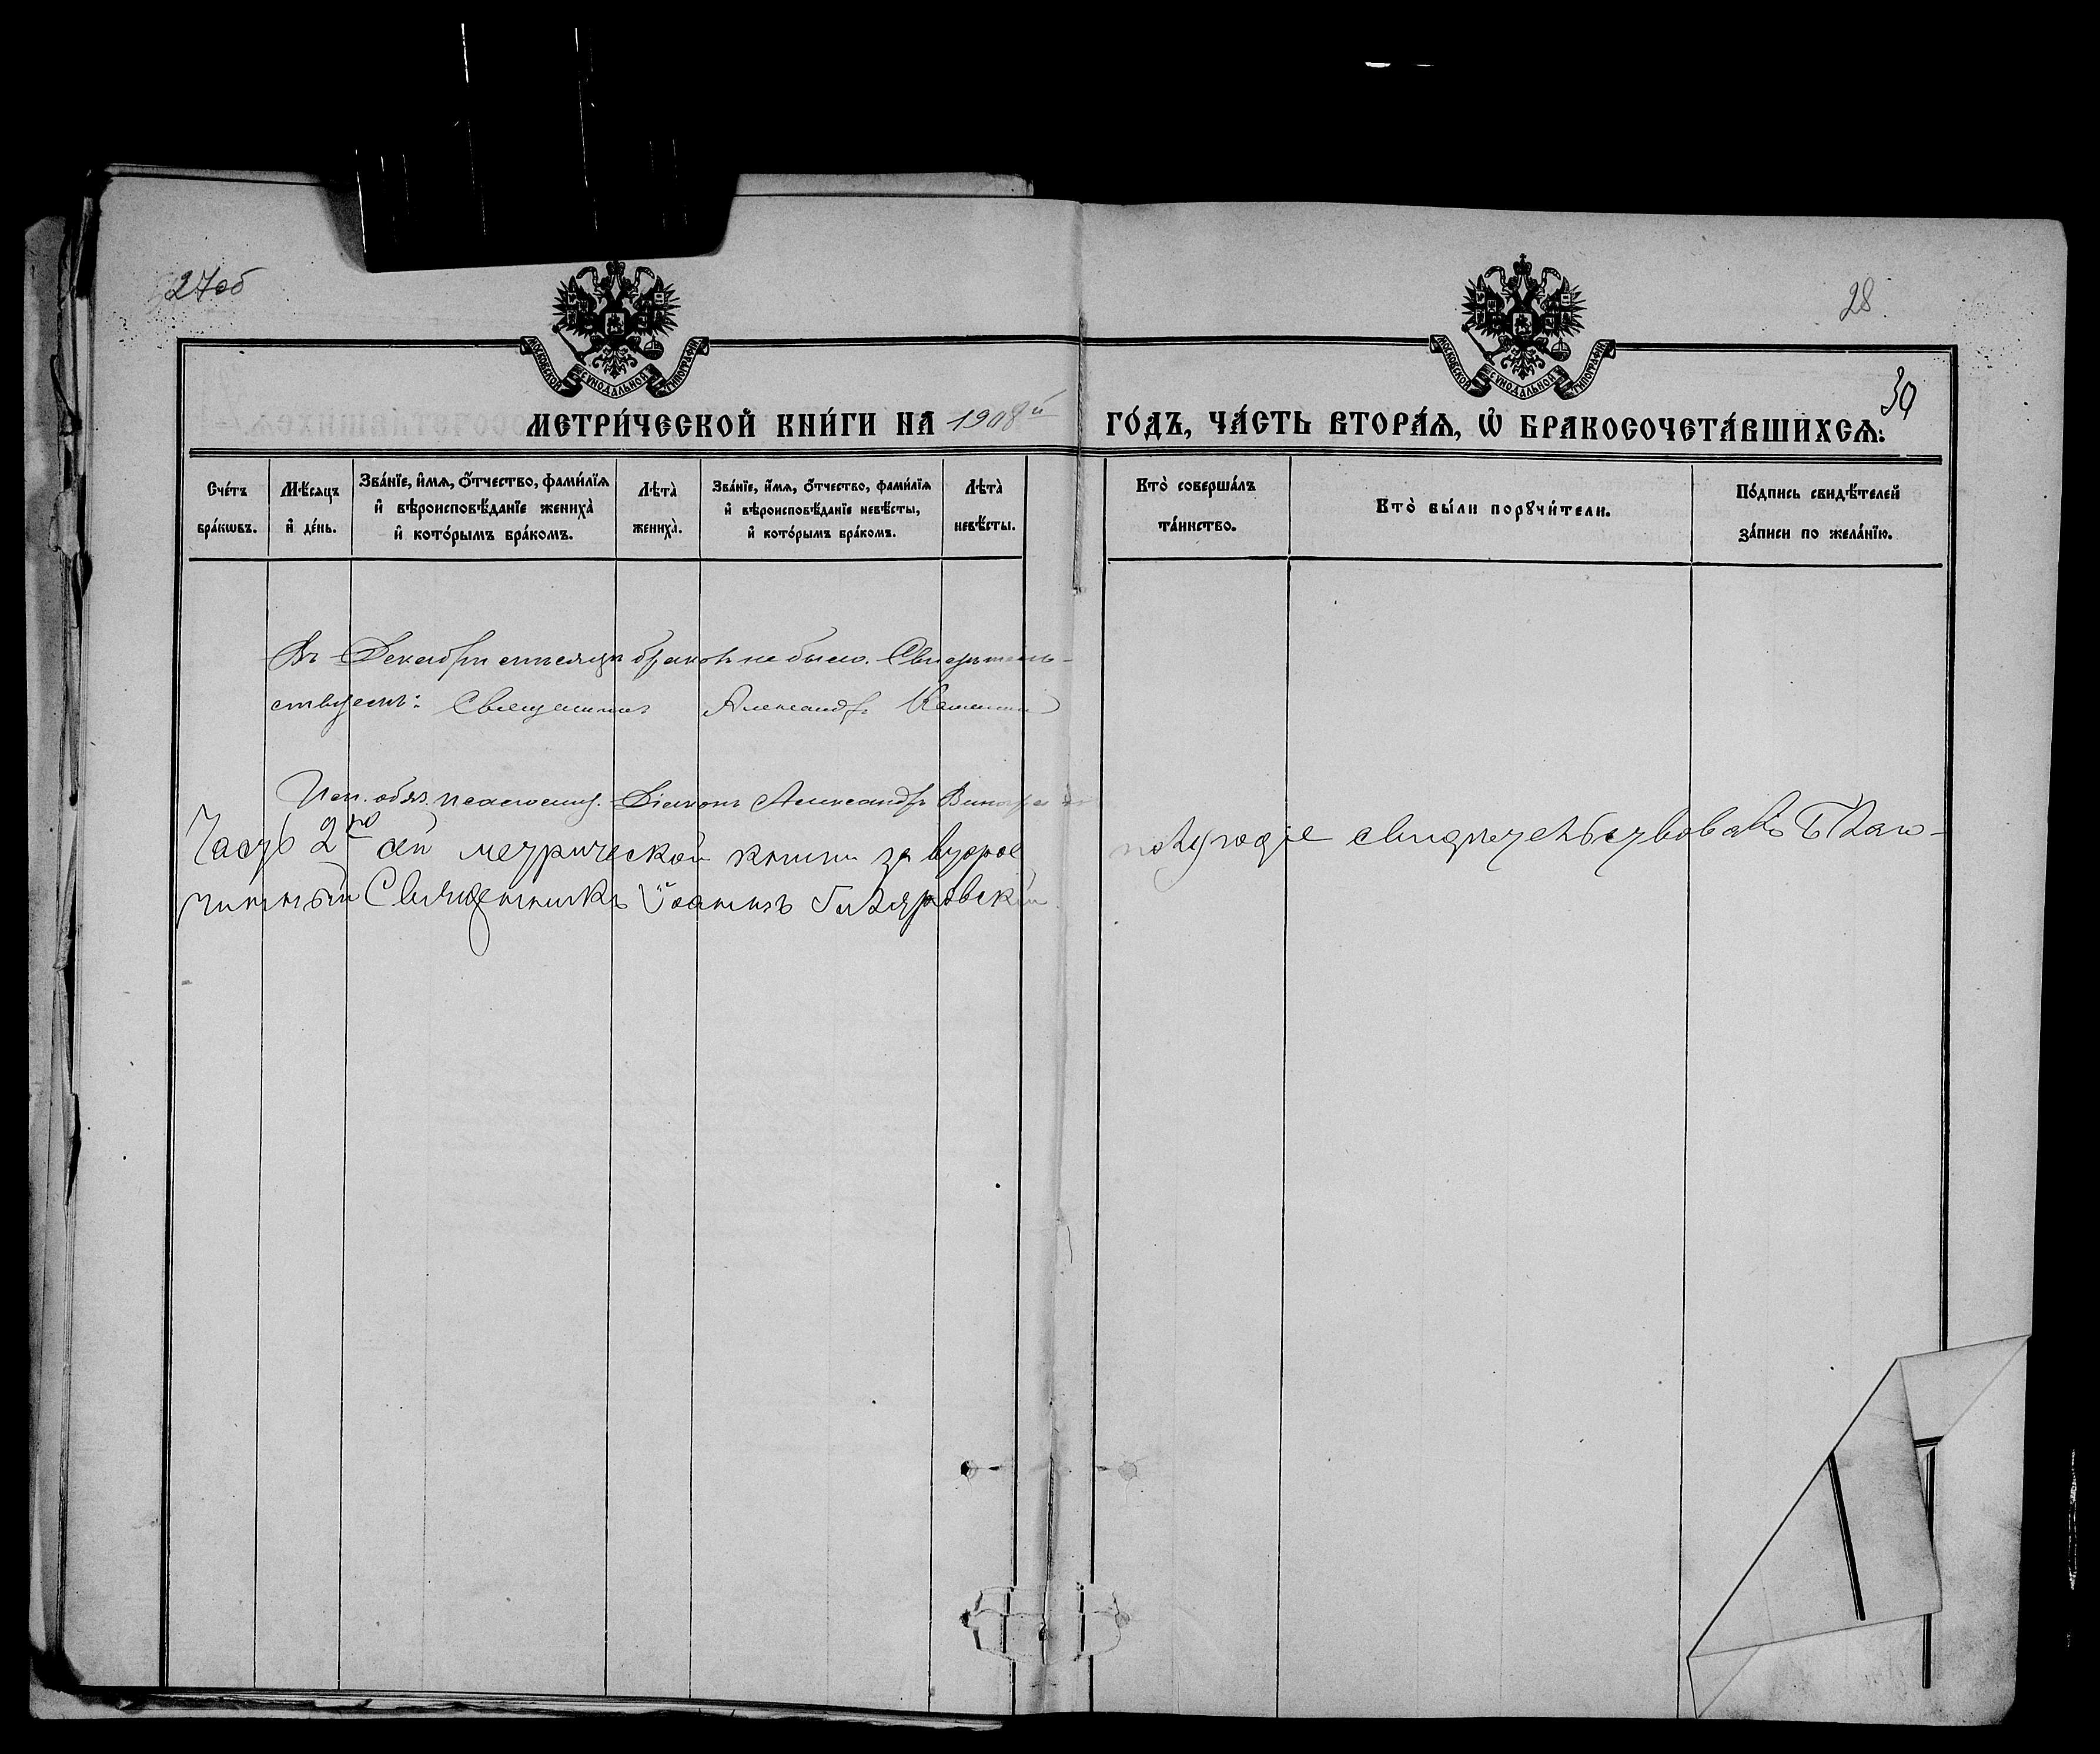 27об
28
30
МОСКОВСКОЙ СѴНОДАЛЬНОЙ ТИПОГРАФІИ
МОСКОВСКОЙ СѴНОДАЛЬНОЙ ТИПОГРАФІИ
МЕТРИ́ЧЕСКОЙ КНИ́ГИ НА 1908й ГО́ДЪ, ЧА́СТЬ ВТОРА́Ѧ, Ѽ БРАКОСОЧЕТА́ВШИХСѦ:
Сче́тъ бра́кѡвъ.
Мѣ́сѧцъ и҆ де́нь.
Зва́нїе, и҆́мѧ, ѻ҆́тчество, фами́лїѧ и҆ вѣроисповѣ́данїе жениха̀ и҆ кото́рымъ бра́комъ.
Лѣта̀ жениха̀.
Зва́нїе, и҆́мѧ, ѻ҆́тчество, фами́лїѧ и҆ вѣроисповѣ́данїе невѣ́сты, и҆ кото́рымъ бра́комъ.
Лѣта̀ невѣ́сты.
Кто̀ соверша́лъ та́инство.
Кто̀ бы́ли порꙋчи́тели.
По́дпись свидѣ́телей за́писи по жела́нїю.
Въ Декабрѣ мѣсяцѣ браковъ не было. Свидѣтель-
ствуемъ: Священникъ Александръ
Исп. обяз. псаломщ. Діаконъ Александръ
Часть 2ю сей метрической книги за второе полугодіе свидѣтельствовалъ Благо-
чинный Священникъ Іоаннъ Гиляровскій